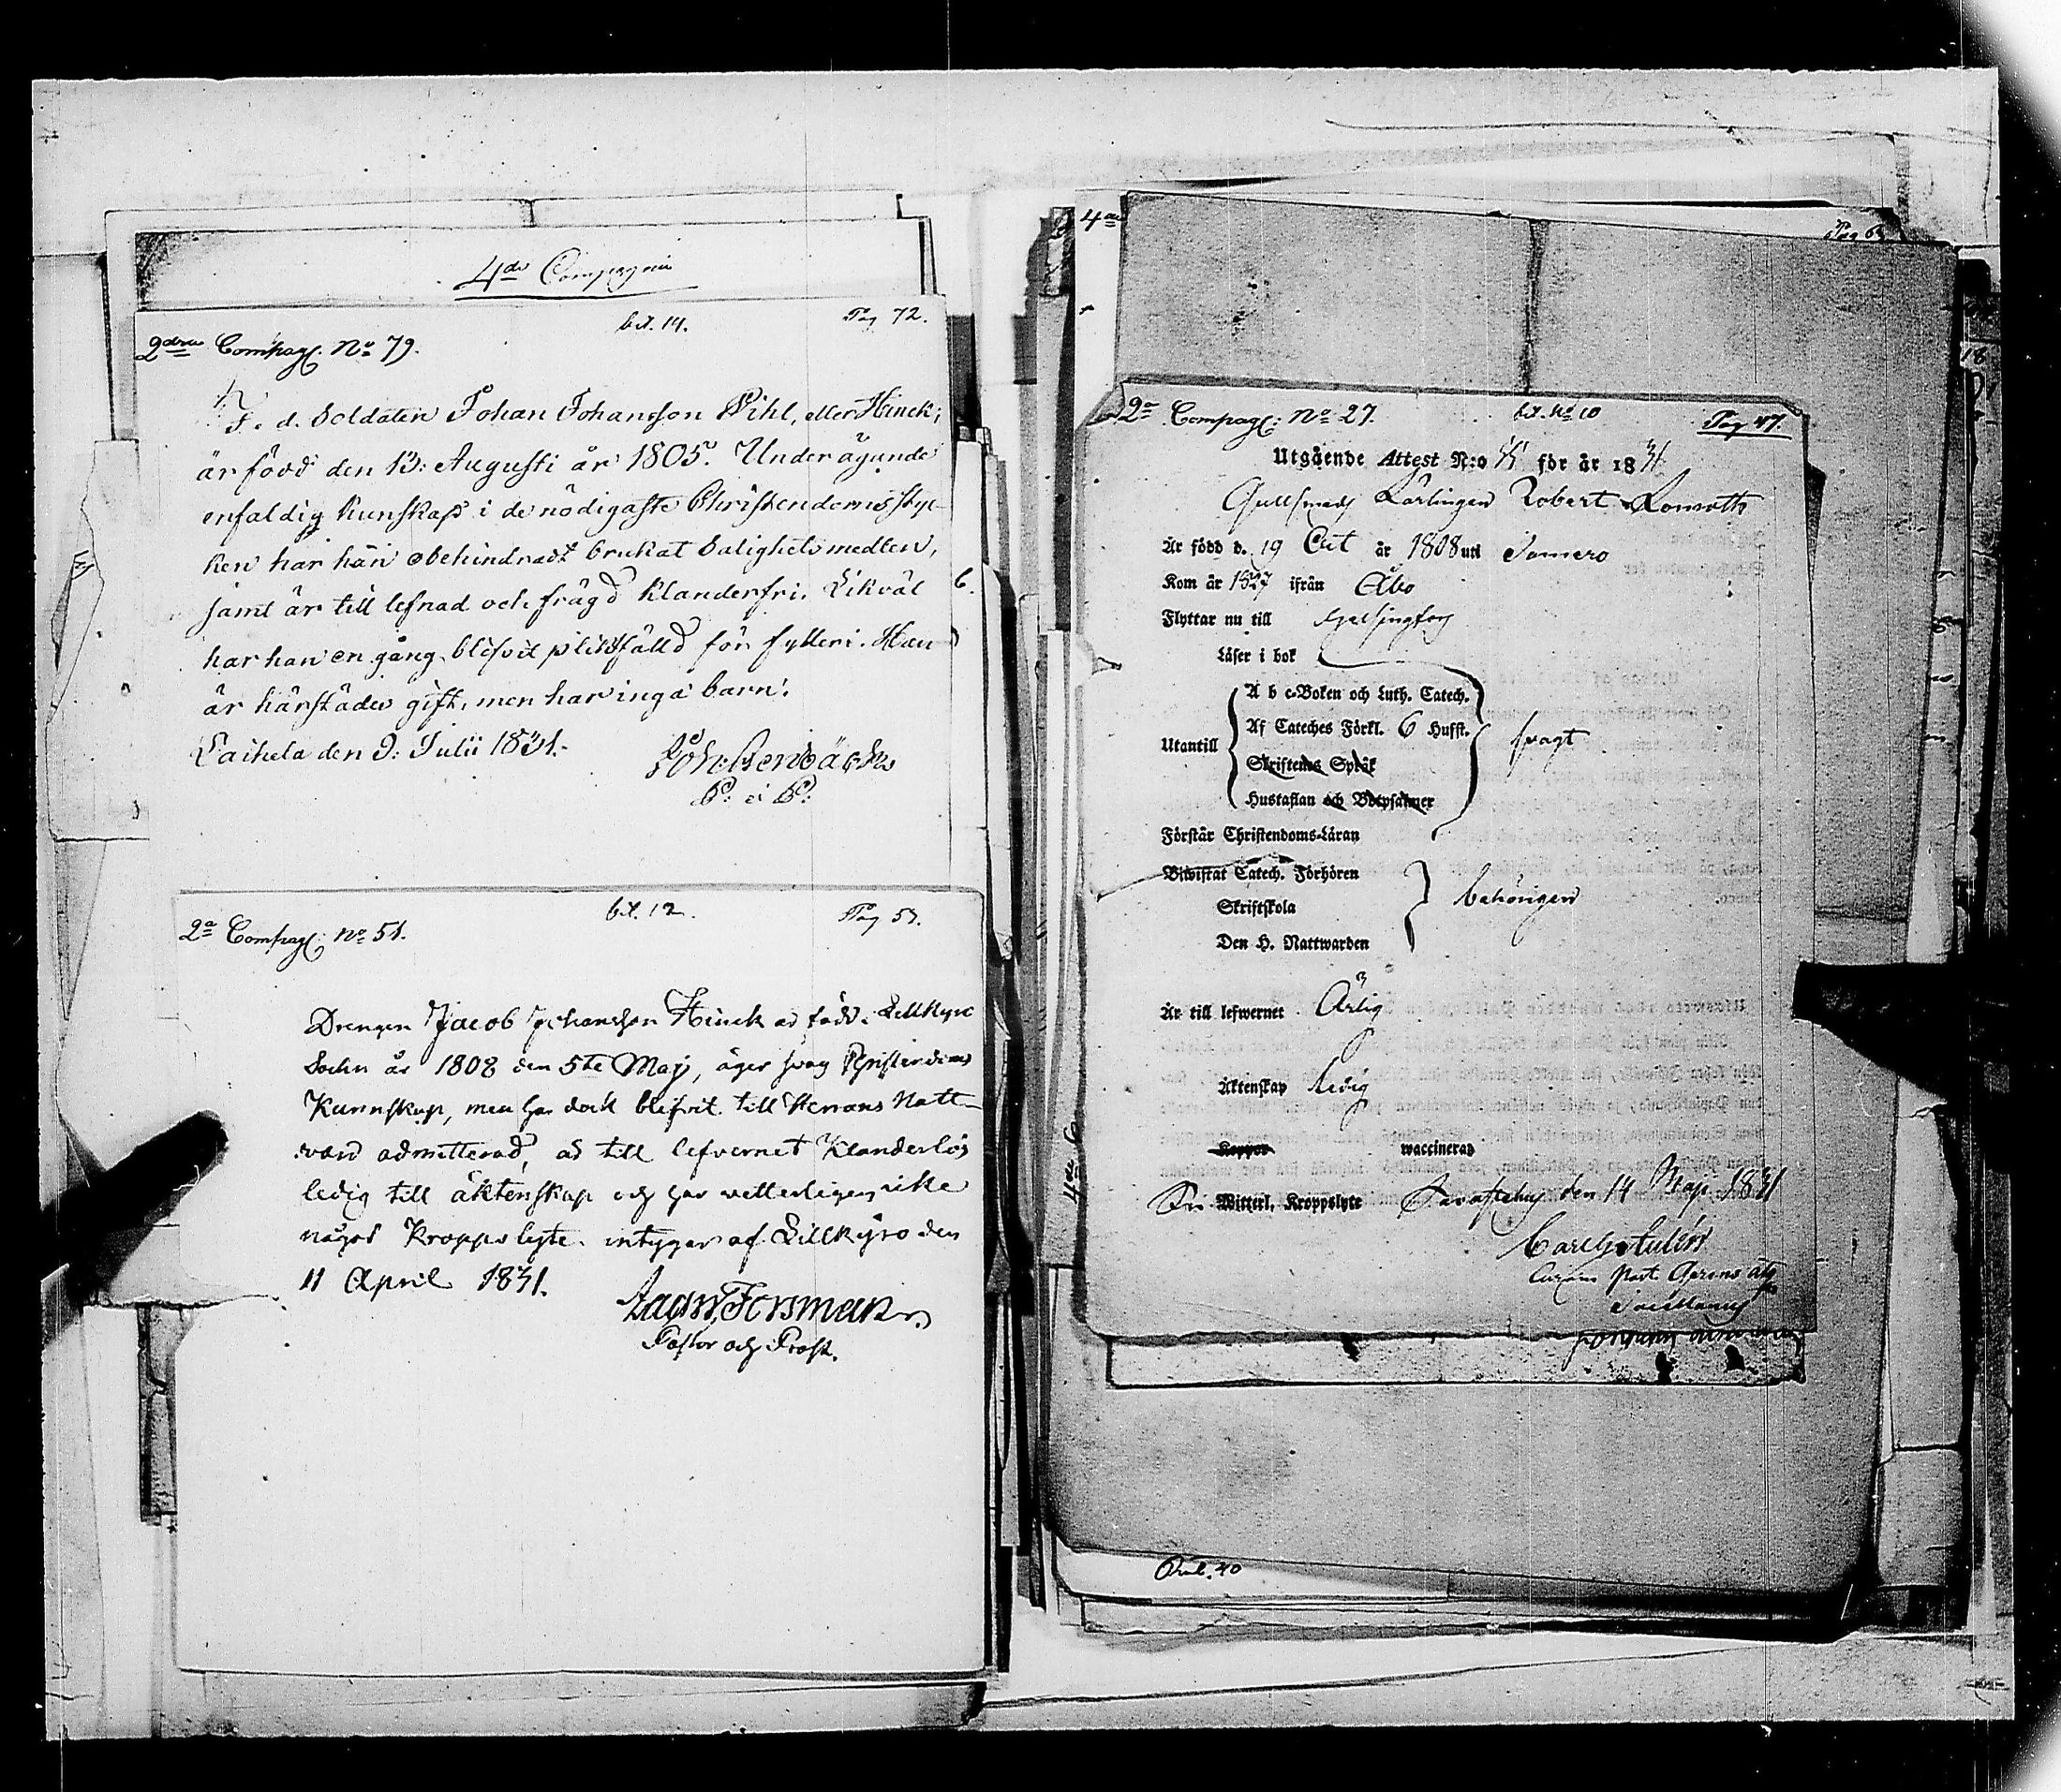 4de Compagnie
bil. 14.
Pag 72.
2dra Compag: No 79.
F. d. Soldaten Johan Johansson Pihl, eller Hinck,
är född den 13: Augusti år 1805. Under ägande
enfaldig kunskap i de nödigaste Christendomsstyc-
ken har han obehindradt brukat Salighetsmedlen,
samt är till lefnad och frägd klanderfri. Likväl
har han en gång blifvit pliktfälld för fylleri. Han
är härstädes gift, men har inga barn.
Laihela den 9: Julii 1831.
P: ei P:
6.
bil. 12.
Pag 57.
2a Compag: No 51.
Drengen Jacob Johansson Hinck är född i Lillkyro
Sochn år 1808 den 5te Maij, äger svag Christendoms
Kunnskap, men har dock blifvit till Herrans Natt-
vard admitterad, är till lefvernet Klanderlös
ledig till äktenskap och har vetterligen icke
något Kroppslyte. intygar af Lillkyro den
11 April 1831.
Forsman
Pastor och Prost.
4de
Pag 63
2a Compag: No 27.
bil. No 10
Pag 47.
Utgående Attest N:o för år 1831
Gullsmeds Lärlingen Robert
Är född d. 19 Oct år 1808 uti Somero
Kom år 1827 ifrån Åbo
Flyttar nu till Helsingfors
Läser i bok
A b c-Boken och Luth. Catech.
Af Cateches Förkl. 6 Hufst.
Utantill
svagt
Skriftenes Språk
Hustaflan och Botpsalmer
Förstår Christendoms-Läran
Biwistat Catech. Förhören
Skriftskola
behörigen
Den H. Nattwarden
Är till lefwernet Ärlig
Äktenskap ledig
Koppor waccinerad
Witterl. Kroppslyte Tavastehus den 14 Maji 1831
Carl G.
Past
40